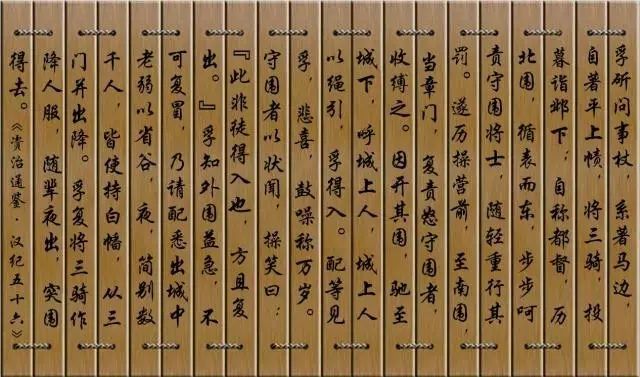 孚斫问事杖，系著马边，
自著平上帻，将三骑，投
暮诣邺下；自称都督，历
北围，循表而东，步步呵
责守围将士，随轻重行其
罚。遂历操营前，至南围，
当章门，复责怒守围者，
收缚之。因开其围，驰至
城下，呼城上人，城上人
以绳引，孚得入。配等见
孚，悲喜，鼓噪称万岁。
守围者以状闻，操笑曰：
『此非徒得入也，方且复
出。』孚知外围益急，不
可复冒，乃请配悉出城中
老弱以省谷，夜，简别数
千人，皆使持白幡，从三
门并出降。孚复将三骑作
降人服，随辈夜出，突围
得去。《资治通鉴·汉纪五十六》